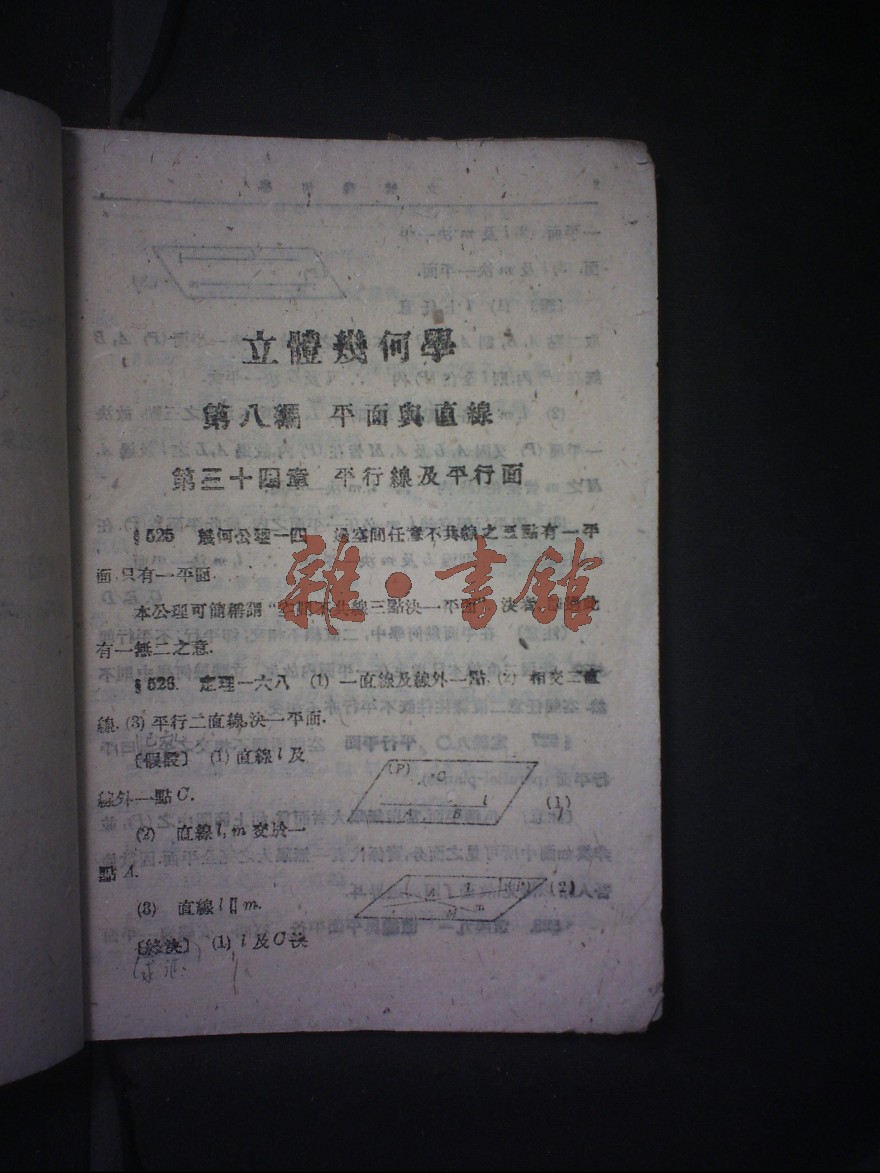 立體幾何學
第八編 平面與直線
第三十四章 平行線及平行面
§525 幾何公理一四 過空間任意不共線之三點有一平
面,只有一平面.
本公理可簡稱謂“空間不共線三點決一平面”,決者,
有一無二之意.
§526. 定理一六八 (1) 一直線及線外一點. (2) 相交二直
線. (3) 平行二直線,決一平面.
〔假設〕 (1) 直線 l 及
線外一點 C.
(P) C
A B l
(1)
(2) 直線 l, m 交於一
點 A.
(2)
(3) 直線 l ∥ m.
〔終決〕 (1) l 及 C 決
雜·書館